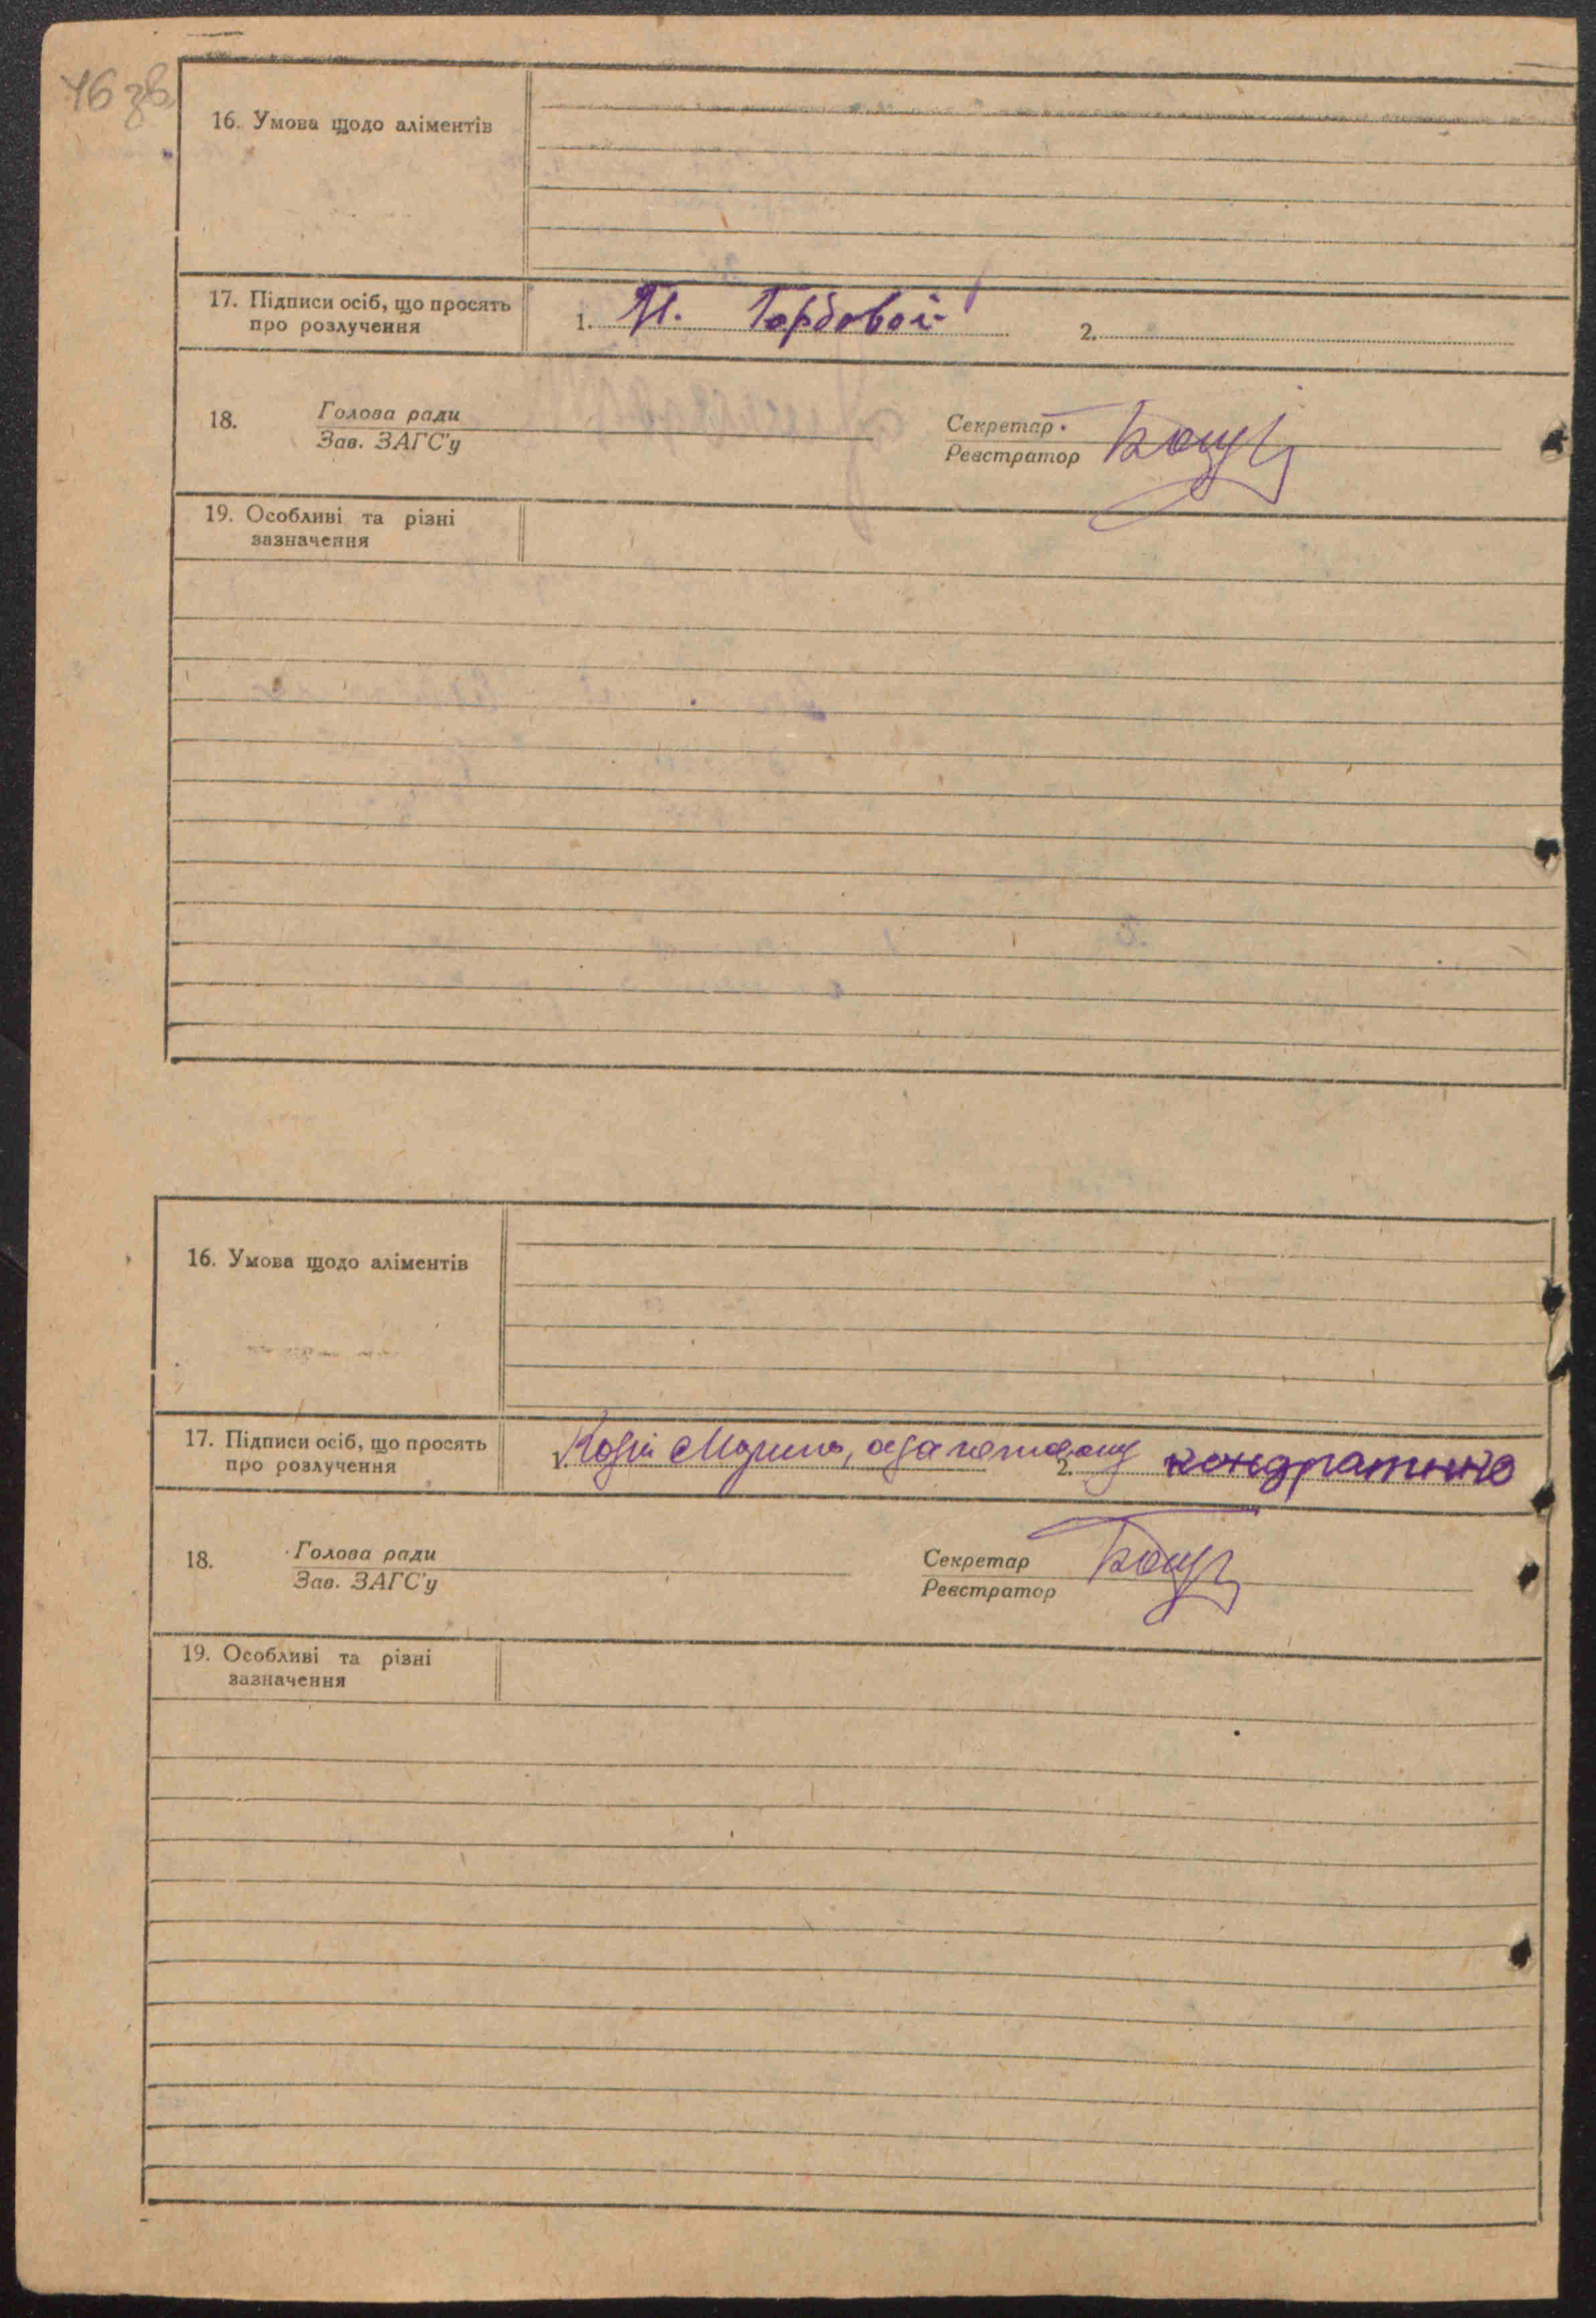 46 зв
16. Умова щодо аліментів
17. Підписи осіб, що просять
про розлучення
1. Горбовой
2.
18.
Голова ради
Зав. ЗАГС'у
Секретар
Реєстратор
19. Особливі та різні
зазначення
16. Умова щодо аліментів
17. Підписи осіб, що просять
про розлучення
1.
2. кондратенко
18.
Голова ради
Зав. ЗАГС'у
Секретар
Реєстратор
19. Особливі та різні
зазначення